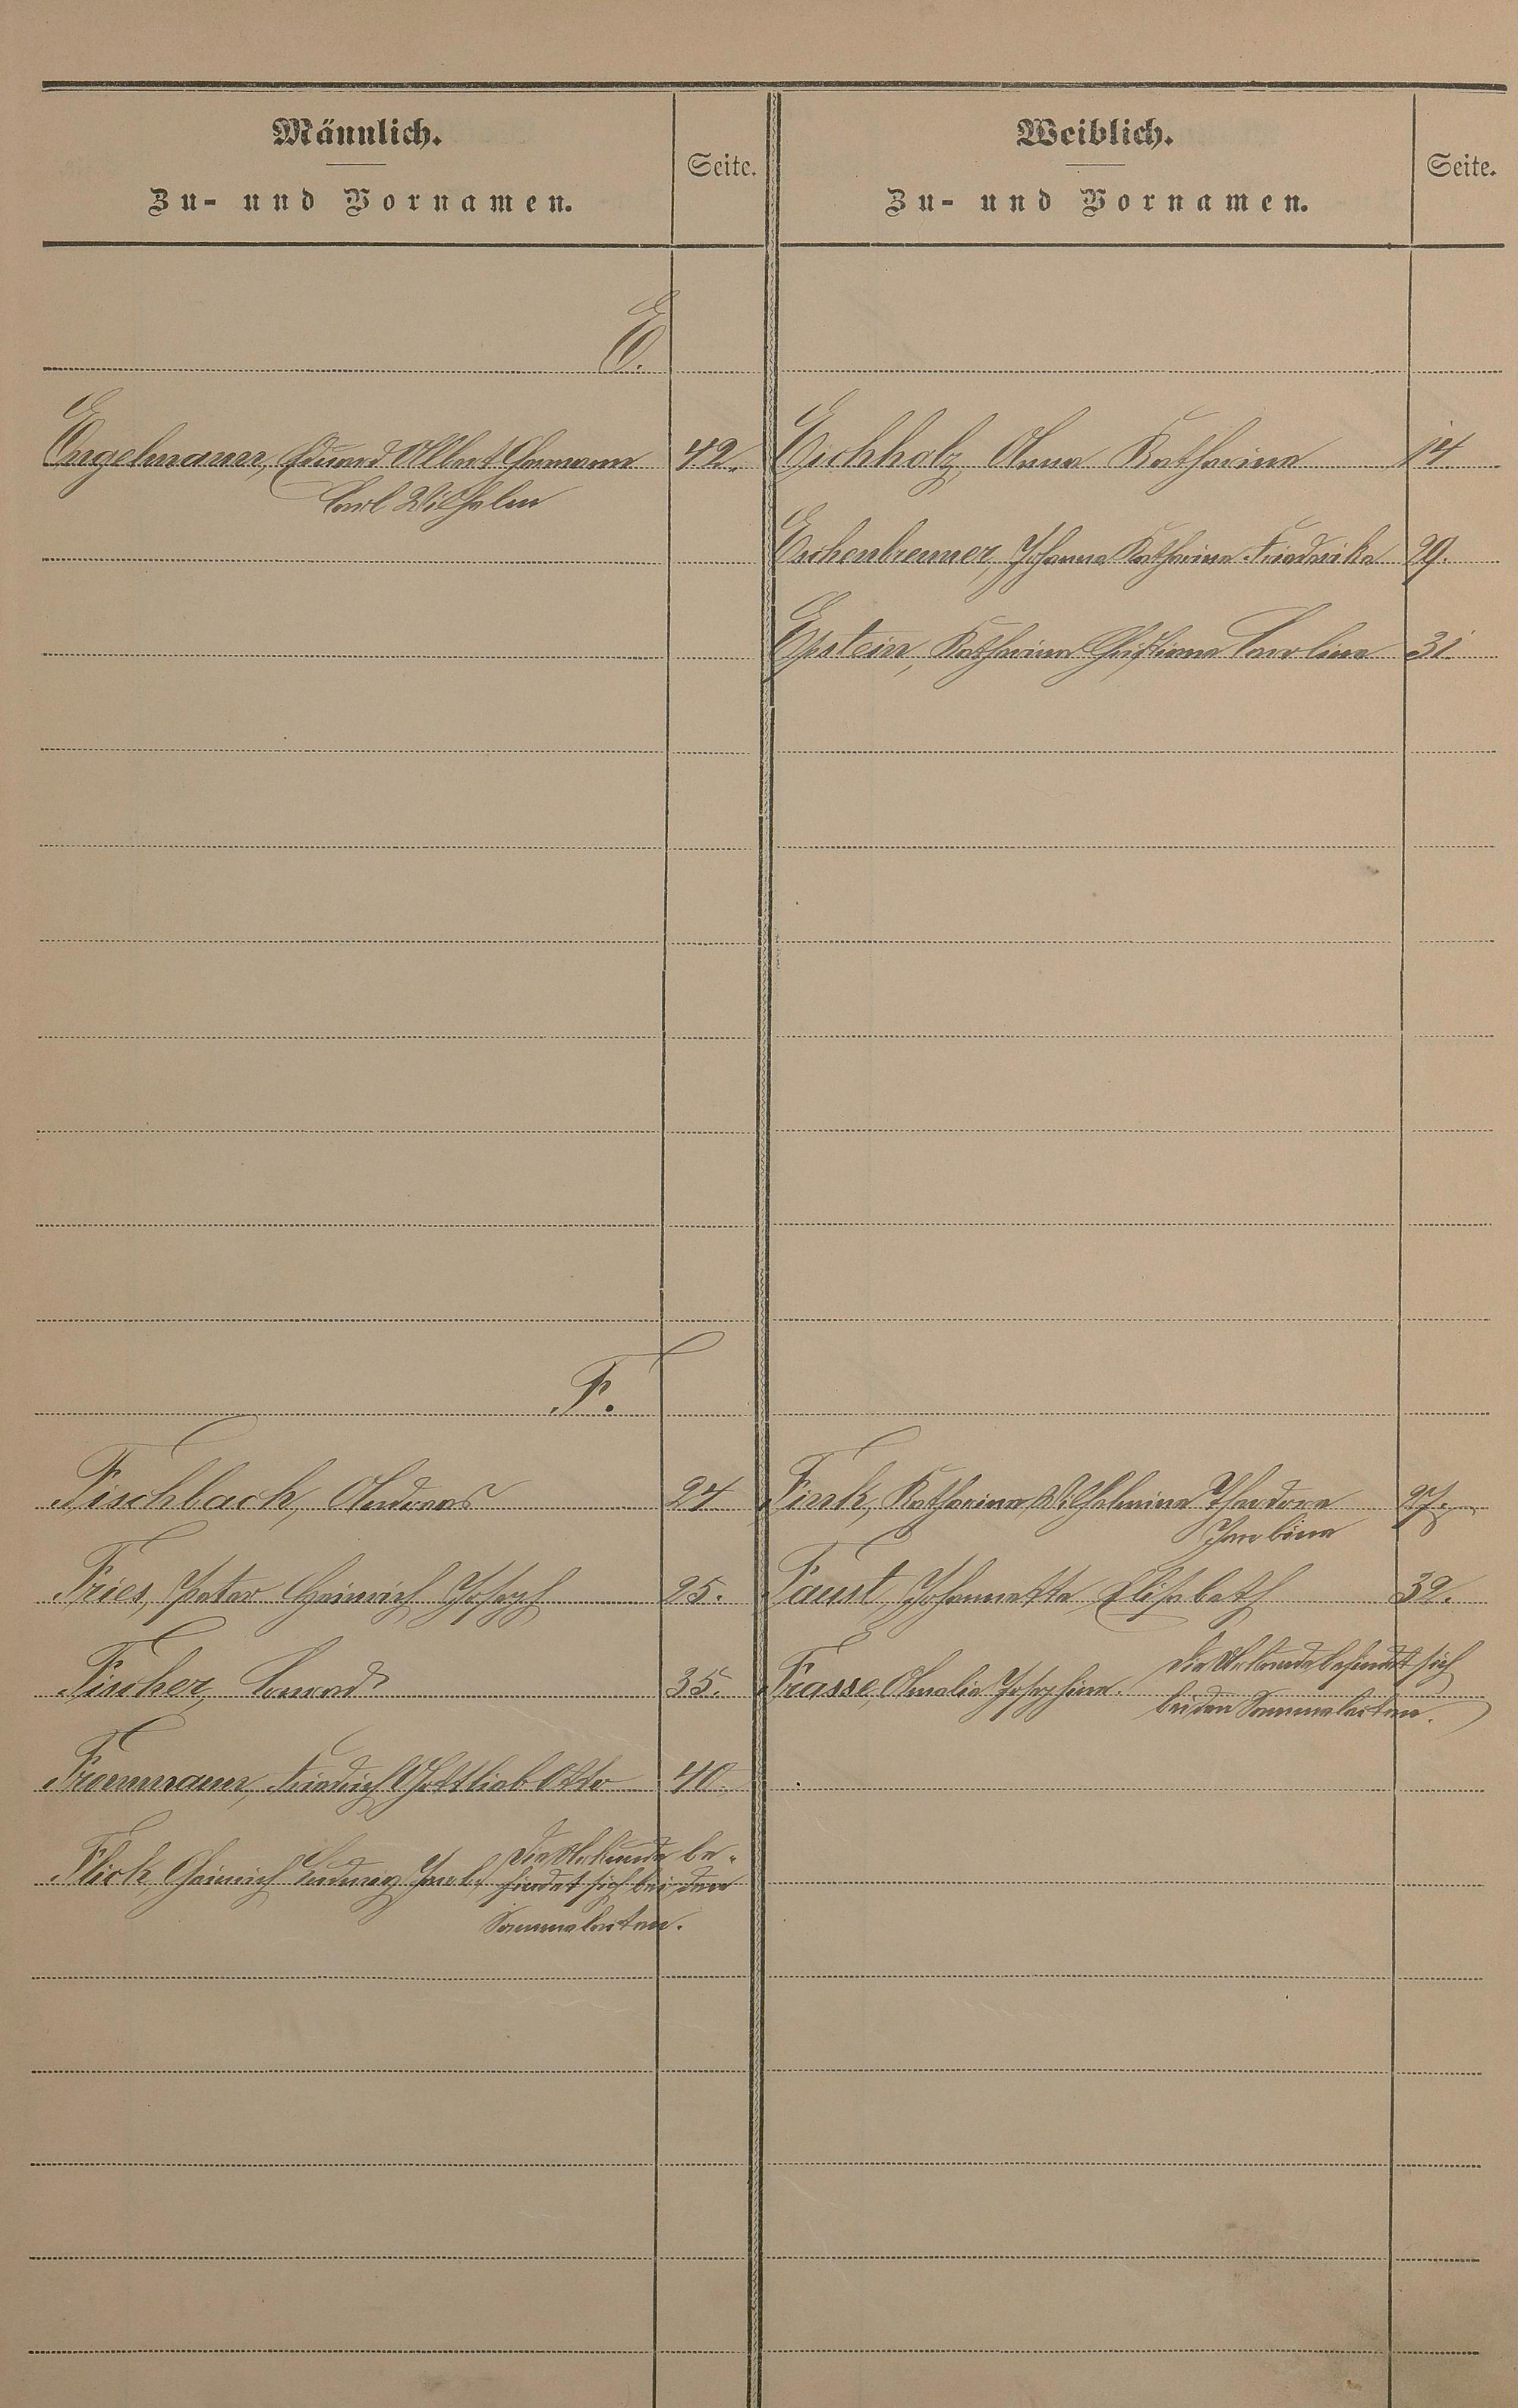 Männlich.
Zu- und Vornamen.
Seite.
Weiblich.
Zu- und Vornamen.
Seite.
E.
Engelmann, Eduard Albert Hermann 42.
Carl Wilhelm
Eichholz, Anna Katharina 14
Eschenbrenner, Johanna Katharina Friederike 29.
Epstein, Katharina Christiana Carolina 31.
F.
Fischbach, Andreas 24
Fink, Katharina Wilhelmina Theodora 27.
Jacobina
Fries, Peter Heinrich Joseph 25.
Faust, Johannetta Elisabeth 32.
Fischer, Conrad 35.
Frasse, Amalie Josephine. Die Urkunde befindet sich
bei den Sammelacten.
Froemmann, Friedrich Gottlieb Otto 40.
Flick, Heinrich Ludwig Jacob, Die Urkunde be-
findet sich bei den
Sammelacten.